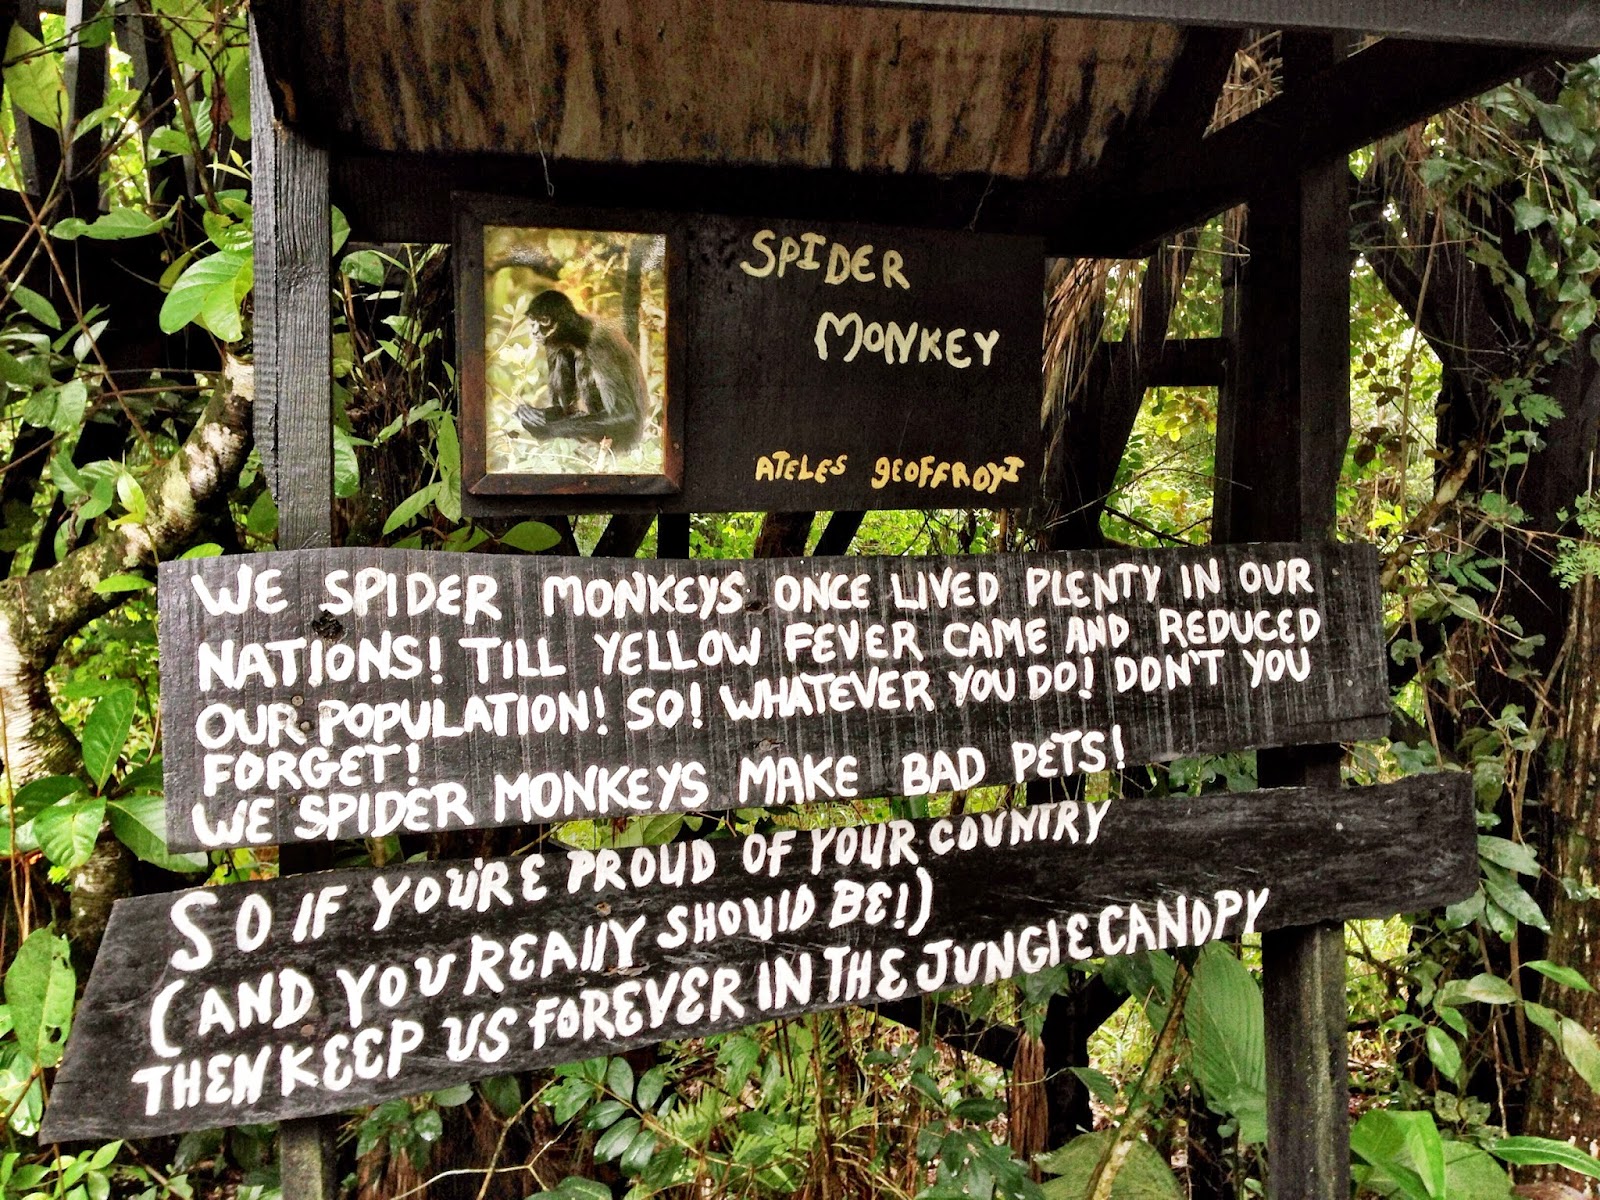 SPIDER
MONKEY
ATELES gEOFFROYI
WE SPIDER MONKEYS ONCE LIVED PLENTY IN OUR
NATIONS! TILL YELLOW FEVER CAME AND REDUCED
OUR POPULATION! SO! WHATEVER YOU DO! DON'T YOU
FORGET!
WE SPIDER MONKEYS MAKE BAD PETS!
SO IF YOU'RE PROUD OF YOUR COUNTRY
(AND YOU REAllY SHOUlD BE!)
THEN KEEP US FOREVER IN THE JUNGlE CANOPY